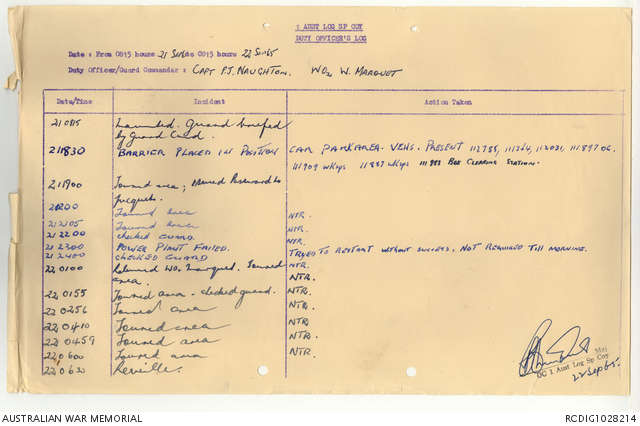 1 AUST LOG SP COY
DUTY OFFICER'S LOG
Date : From 0815 hours 21 Sep to 0815 hours 22 Sep 65
Duty Officer/Guard Commander : CAPT P.J. NAUGHTON. WO2 W. MARQUET
Date/Time Incident Action Taken
210815 Guard briefed
by Guard Comd.
211830 BARRIER PLACED IN POSITION CAR PARK AREA. VEHS. PRESENT 112788, 111364, 112031, 111897 OC,
111909 WKSPS 111837 WKSPS 111983 BOX CLEARING STATION.
211900 Toured area; to
picquets.
212000 Toured area NTR.
212105 Toured area NTR.
212200 CHECKED GUARD. NTR.
212300 POWER PLANT FAILED. TRYED TO RESTART WITHOUT SUCCESS. NOT REQUIRED TILL MORNING.
212400 CHECKED GUARD NTR.
220100 Relieved WO Marquet. Toured
area. NTR.
220155 Toured area - checked guard. NTR.
220256 Toured area NTR.
220410 Toured area NTR.
220459 Toured area NTR.
220600 Toured area NTR.
220630 Reveille.
Maj
OC 1 Aust Log Sp Coy
22 Sep 65.
AUSTRALIAN WAR MEMORIAL
RCDIG1028214